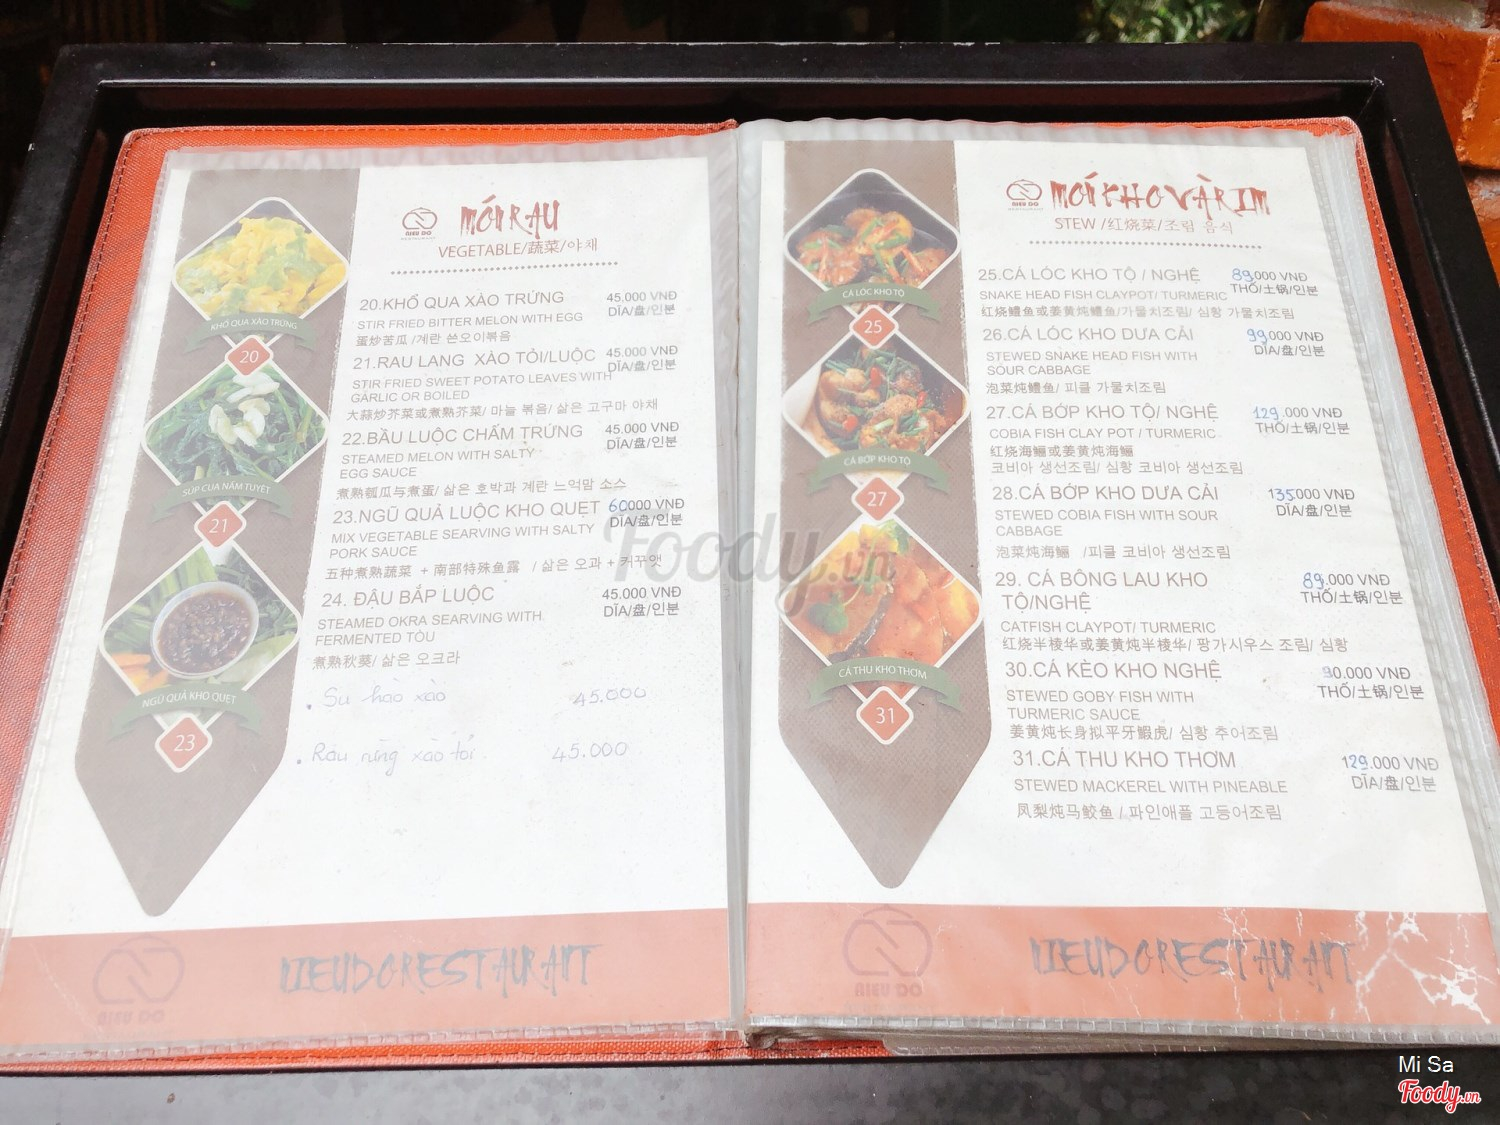 NIEU DO
RESTAURANT
MÓI RAU
VEGETABLE/蔬菜/야채
20.KHỔ QUA XÀO TRỨNG 45.000 VNĐ
STIR FRIED BITTER MELON WITH EGG DĨA/盘/인분
蛋炒苦瓜 /계란 쓴오이볶음
21.RAU LANG XÀO TỎI/LUỘC 45.000 VNĐ
STIR FRIED SWEET POTATO LEAVES WITH DĨA/盘/인분
GARLIC OR BOILED
大蒜炒芥菜或煮熟芥菜/ 마늘 볶음/ 삶은 고구마 야채
22.BẦU LUỘC CHẤM TRỨNG 45.000 VNĐ
STEAMED MELON WITH SALTY DĨA/盘/인분
EGG SAUCE
煮熟瓠瓜与煮蛋/ 삶은 호박과 계란 느억맘 소스
23.NGŨ QUẢ LUỘC KHO QUẸT 60000 VNĐ
MIX VEGETABLE SEARVING WITH SALTY DĨA/盘/인분
PORK SAUCE
五种煮熟蔬菜 + 南部特殊鱼露 / 삶은 오과 + 커꾸앳
24. ĐẬU BẮP LUỘC 45.000 VNĐ
STEAMED OKRA SEARVING WITH DĨA/盘/인분
FERMENTED TÓU
煮熟秋葵/ 삶은 오크라
. Su hào xào 45.000
. Rau rừng xào tỏi 45.000
KHỔ QUA XÀO TRỨNG
20
SÚP CUA NẤM TUYẾT
21
NGŨ QUẢ KHO QUẸT
23
NIEUDORESTAURANT
NIEU DO
NIEU DO
RESTAURANT
MÓI KHO VÀ RIM
STEW /红烧菜/조림 음식
25.CÁ LÓC KHO TỘ / NGHỆ 89.000 VNĐ
SNAKE HEAD FISH CLAYPOT/ TURMERIC THỐ/土锅/인분
红烧鳢鱼或姜黄炖鳢鱼/가물치조림/ 심황 가물치조림
26.CÁ LÓC KHO DƯA CẢI 99.000 VNĐ
STEWED SNAKE HEAD FISH WITH DĨA/盘/인분
SOUR CABBAGE
泡菜炖鳢鱼/ 피클 가물치조림
27.CÁ BỚP KHO TỘ/ NGHỆ 129.000 VNĐ
COBIA FISH CLAY POT / TURMERIC THỐ/土锅/인분
红烧海鲡或姜黄炖海鲡
코비아 생선조림/ 심황 코비아 생선조림
28.CÁ BỚP KHO DƯA CẢI 135000 VNĐ
STEWED COBIA FISH WITH SOUR DĨA/盘/인분
CABBAGE
泡菜炖海鲡 /피클 코비아 생선조림
29. CÁ BÔNG LAU KHO 89.000 VNĐ
TỘ/NGHỆ THỐ/土锅/인분
CATFISH CLAYPOT/ TURMERIC
红烧半棱华或姜黄炖半棱华/ 팡가시우스 조림/ 심황
30.CÁ KÈO KHO NGHỆ 90.000 VNĐ
STEWED GOBY FISH WITH THỐ/土锅/인분
TURMERIC SAUCE
姜黄炖长身拟平牙鰕虎/ 심황 추어조림
31.CÁ THU KHO THƠM 129.000 VNĐ
STEWED MACKEREL WITH PINEABLE DĨA/盘/인분
凤梨炖马鲛鱼 / 파인애플 고등어조림
CÁ LÓC KHO TỘ
25
CÁ BỚP KHO TỘ
27
CÁ THU KHO THƠM
31
NIEUDORESTAURANT
NIEU DO
Foody.vn
Mi Sa
Foody.vn